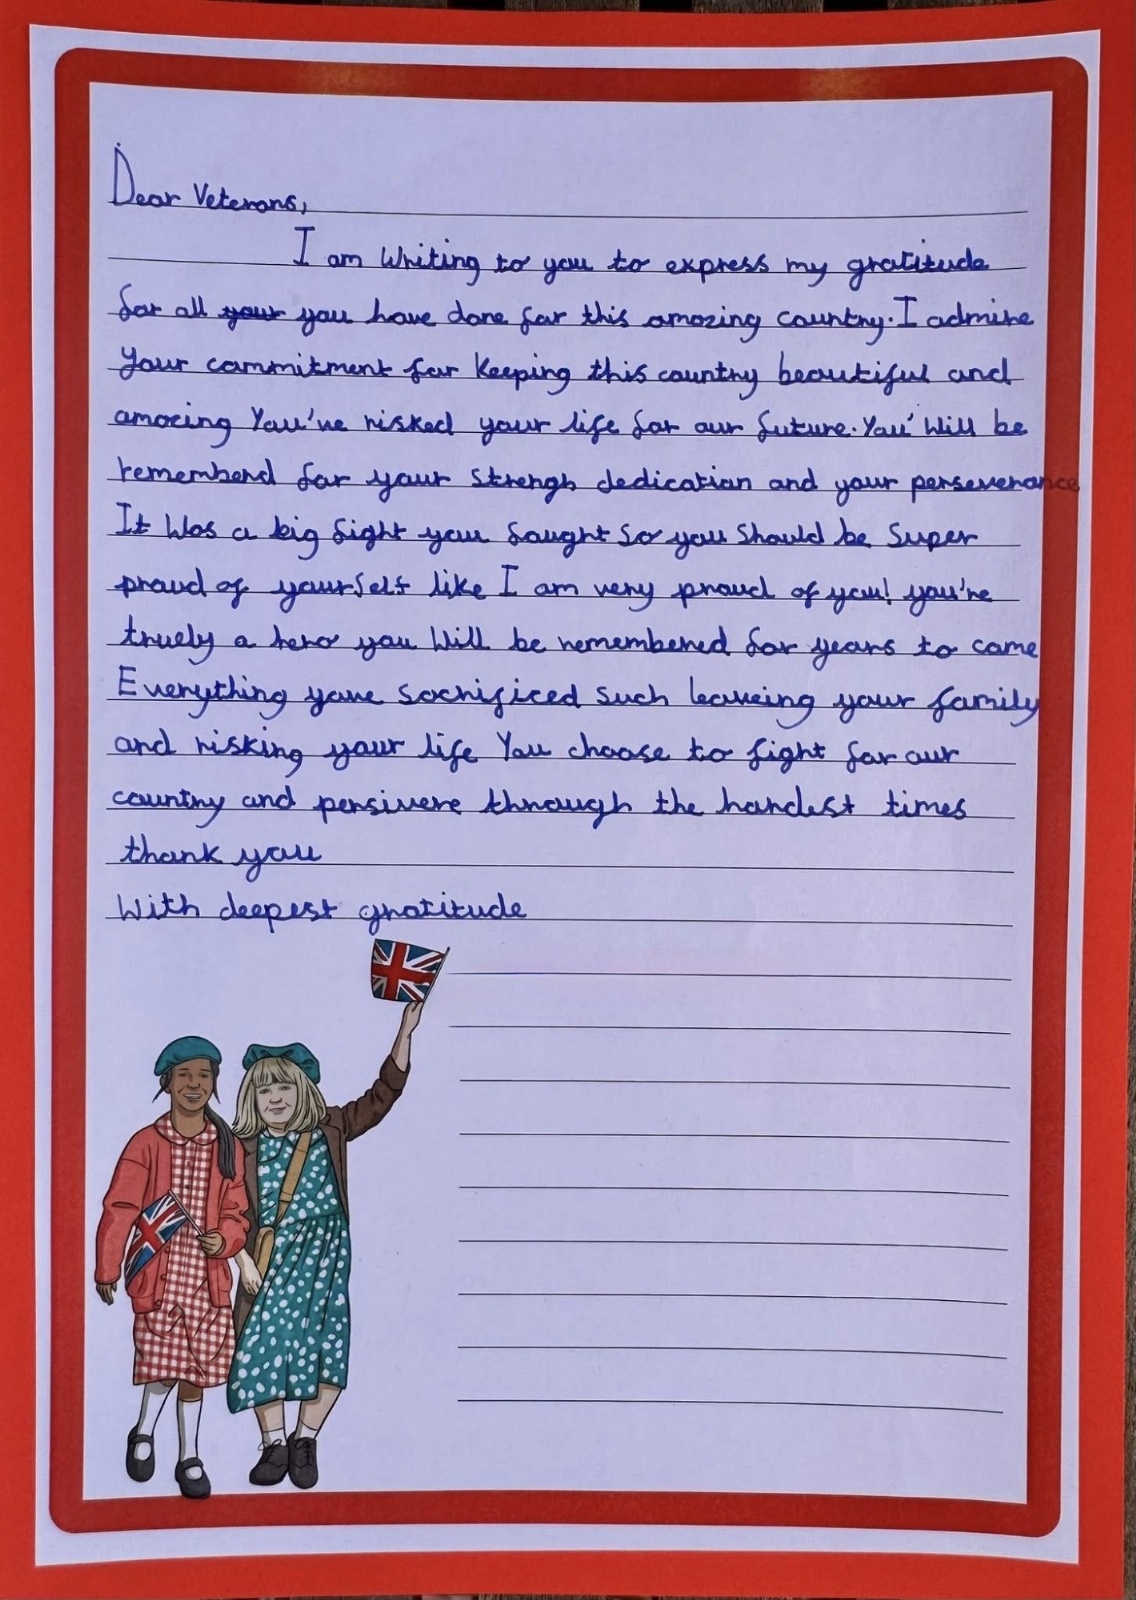 Dear Veterans,
I am Writing to you to express my gratitude
for all your you have done for this amazing country. I admire
your commitment for keeping this country beautiful and
amazing You've risked your life for our future. You' Will be
rememberd for your strengh dedication and your perseverance
It Was a big fight you fought so you should be super
proud of yourself like I am very proud of you! you're
truely a hero you Will be remembered for years to come
Everything youve sacrificed such leaveing your family
and risking your life You choose to fight for our
country and persivere through the hardest times
thank you
With deepest gratitude